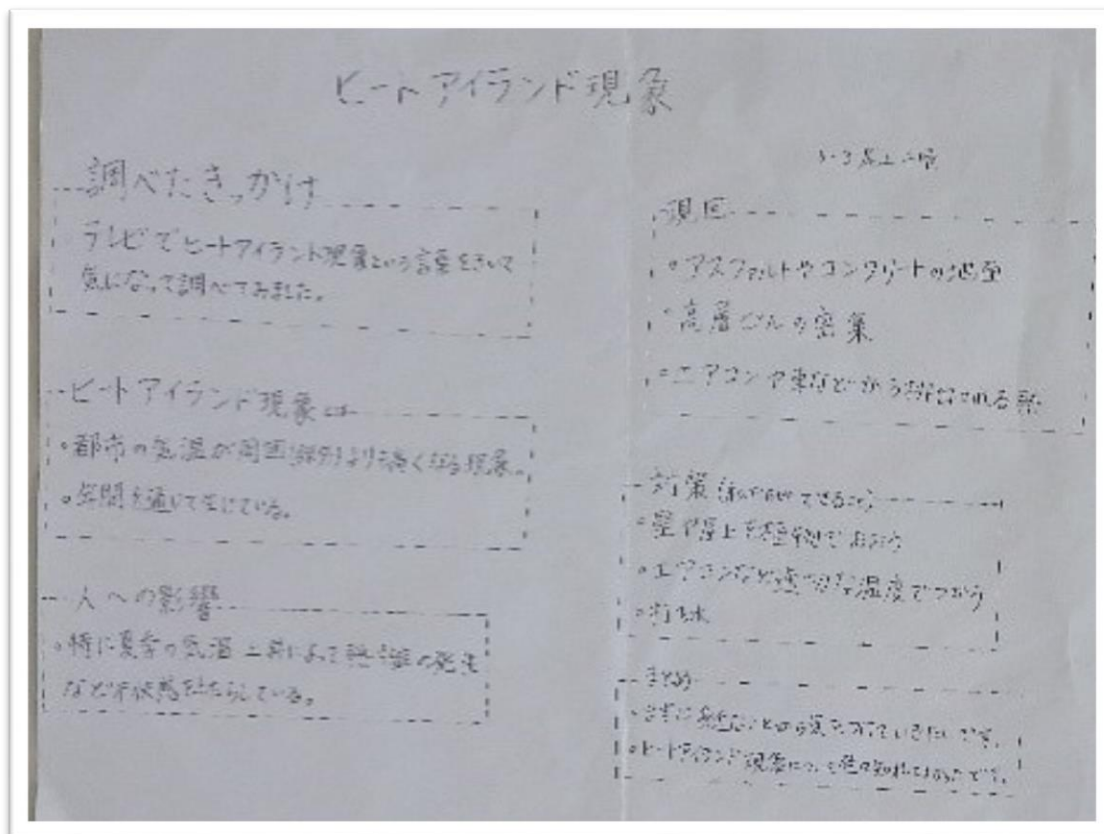 ヒートアイランド現象
調べたきっかけ
テレビでヒートアイランド現象という言葉をきいて
気になって調べてみました。
ヒートアイランド現象は
・都市の気温が周囲(郊外)より高くなる現象。
・年間を通じて生じている。
人への影響
・特に夏季の気温上昇によって熱中症の発生
など不快感をもたらしている。
3-3
原因
・アスファルトやコンクリートの地面
・高層ビルの密集
・エアコンや車などから排出される熱
対策(できること)
・壁や屋上を植物でおおう
・エアコンなど適切な温度でつかう
・打ち水
まとめ
・身近なことから気を付けていきたいです。
・ヒートアイランド現象について知れてよかったです。